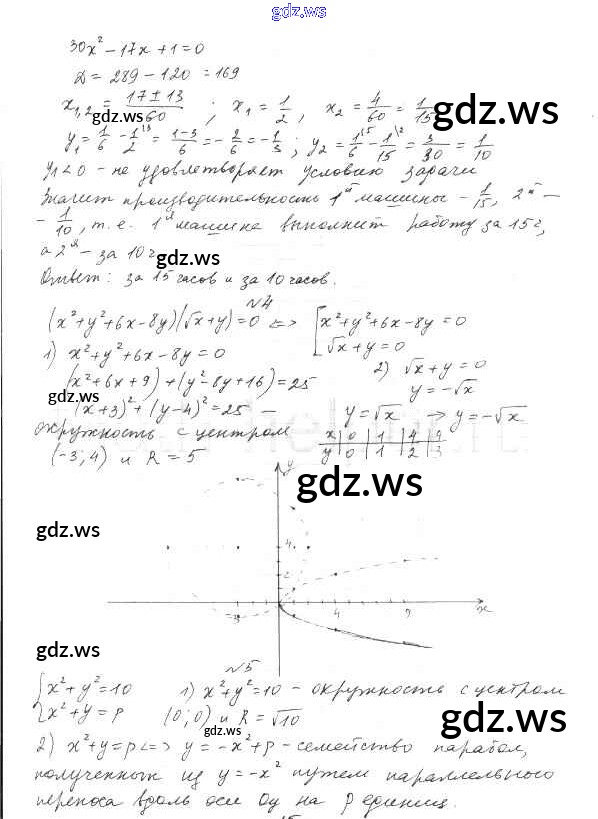 gdz.ws
30x² − 17x + 1 = 0
D = 289 − 120 = 169
x₁,₂ = (17 ± 13)/60 ; x₁ = 1/2, x₂ = 4/60 = 1/15
gdz.ws
gdz.ws
y₁ = 1/6 − 1/2 = (1−3)/6 = −2/6 = −1/3 ; y₂ = 1/6 − 1/15 = 3/30 = 1/10
y₁ < 0 – не удовлетворяет условию задачи
Значит производительность 1й машины – 1/15, 2й –
– 1/10, т.е. 1я машина выполнит работу за 15 ч,
а 2я – за 10 ч.
gdz.ws
Ответ: за 15 часов и за 10 часов.
№4
(x² + y² + 6x − 8y)(√x + y) = 0 <=> [ x² + y² + 6x − 8y = 0
√x + y = 0
1) x² + y² + 6x − 8y = 0
2) √x + y = 0
(x² + 6x + 9) + (y² − 8y + 16) = 25
y = −√x
(x + 3)² + (y − 4)² = 25 –
y = √x → y = −√x
окружность с центром
x | 0 | 1 | 4 | 9
(−3; 4) и R = 5
y | 0 | 1 | 2 | 3
gdz.ws
y
gdz.ws
4
2
−3 4 9 x
gdz.ws
№5
{ x² + y² = 10
x² + y = p
1) x² + y² = 10 – окружность с центром
(0; 0) и R = √10
gdz.ws
2) x² + y = p <=> y = −x² + p – семейство парабол,
полученных из y = −x² путем параллельного
gdz.ws
переноса вдоль оси Oy на p единиц.
gdz.ws